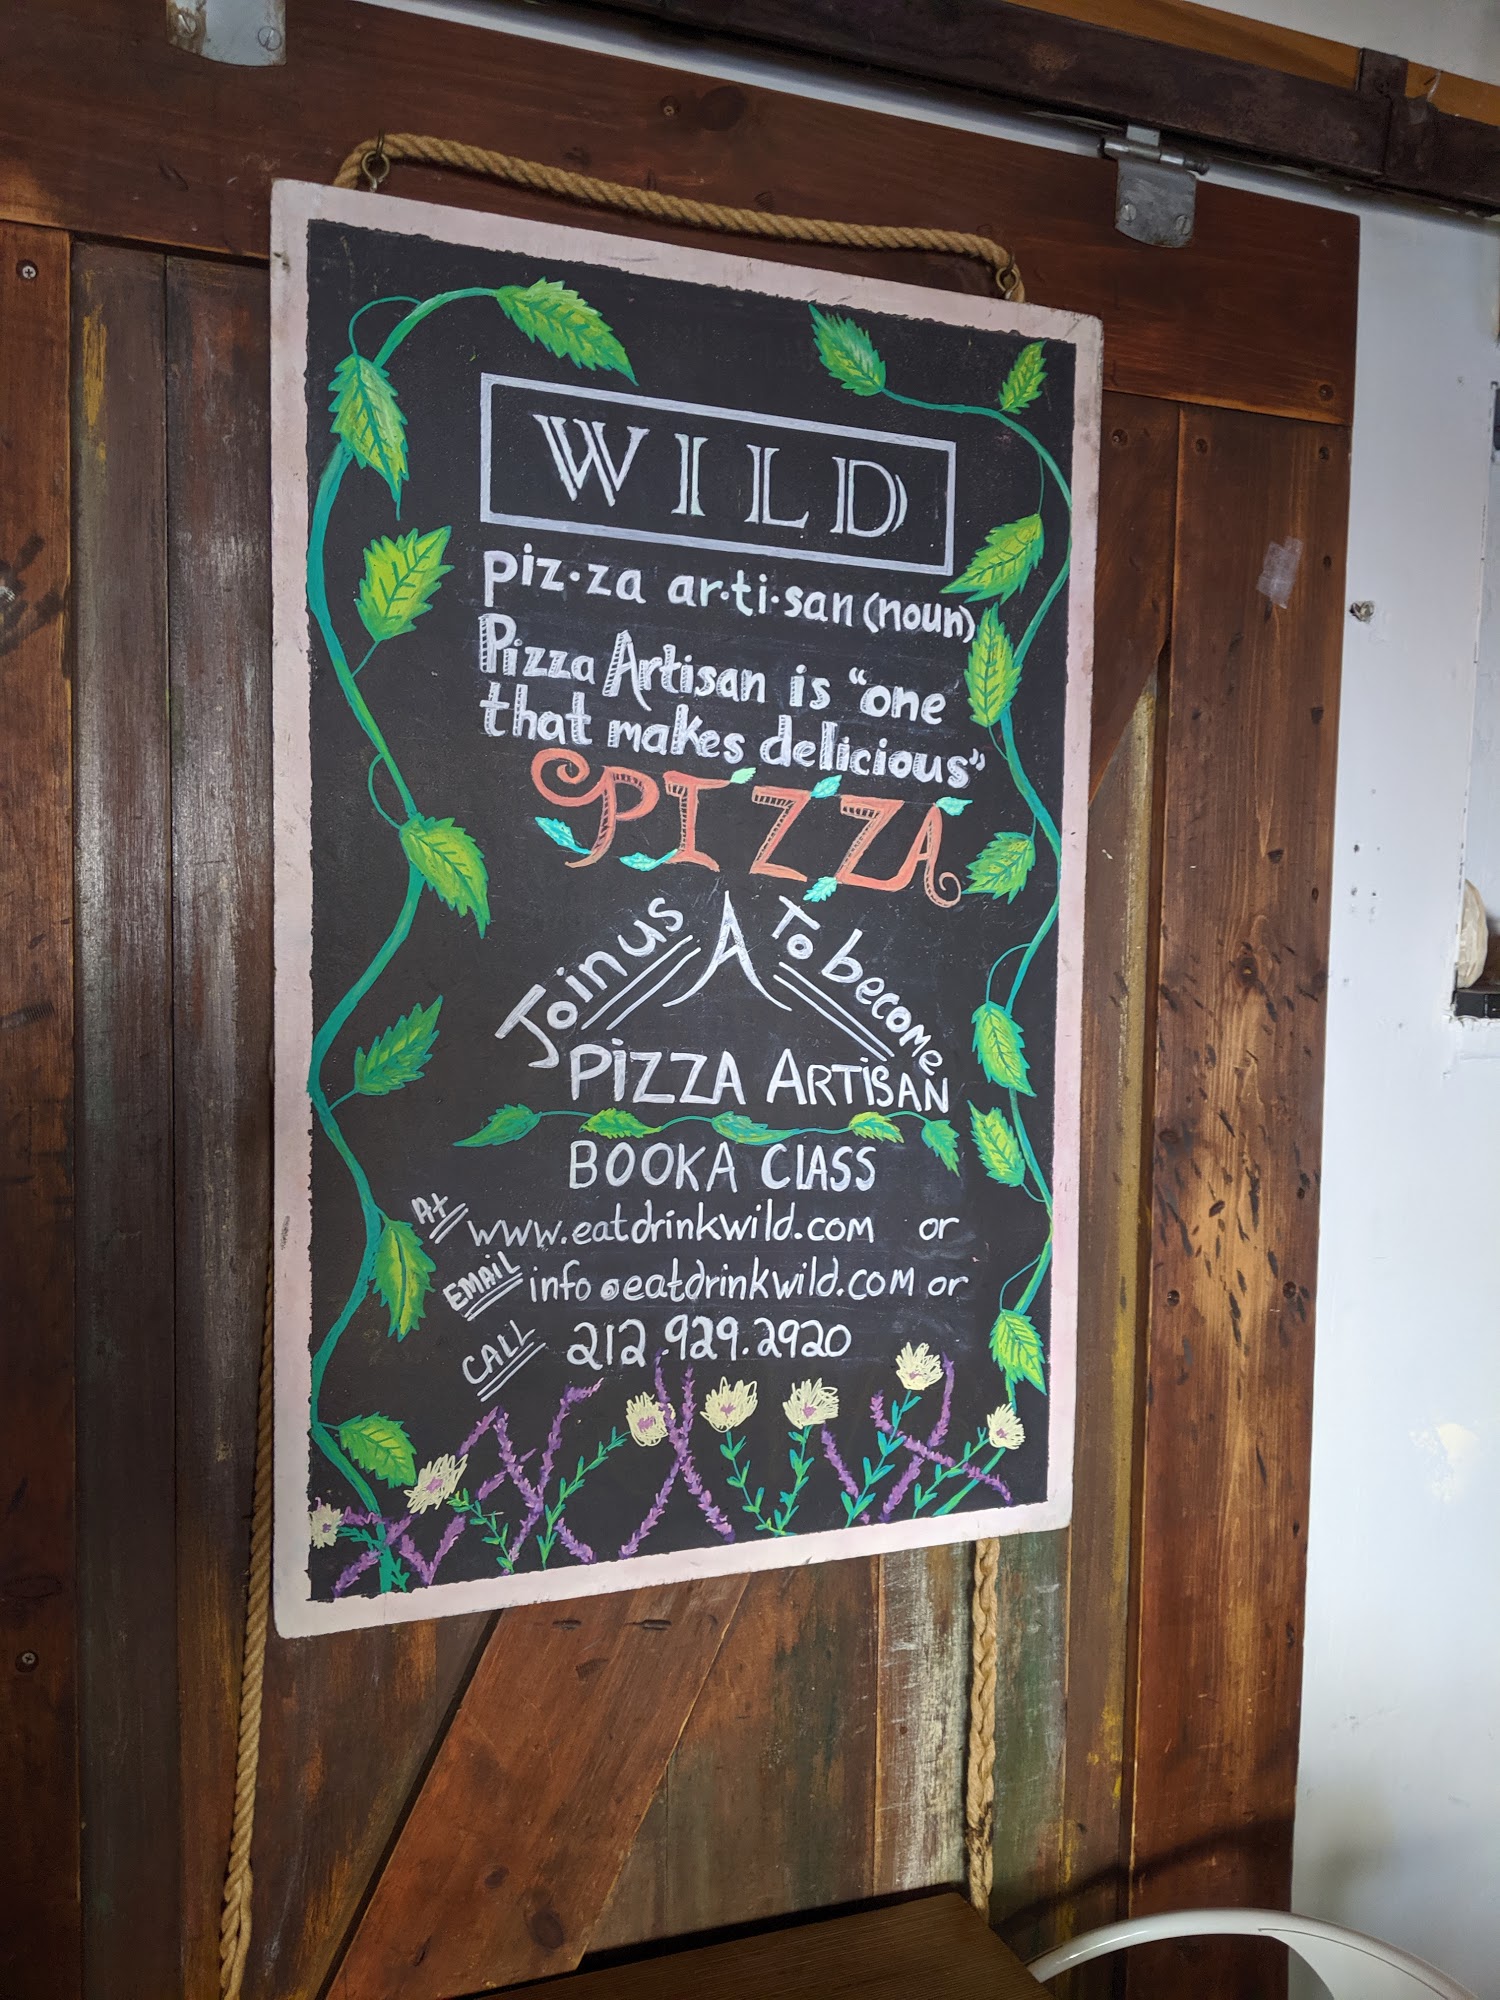 WILD
piz·za ar·ti·san (noun)
Pizza Artisan is "one
that makes delicious"
PIZZA
Join us A To become
PIZZA ARTISAN
BOOK A CLASS
At www.eatdrinkwild.com or
EMAIL info@eatdrinkwild.com or
CALL 212.929.2920